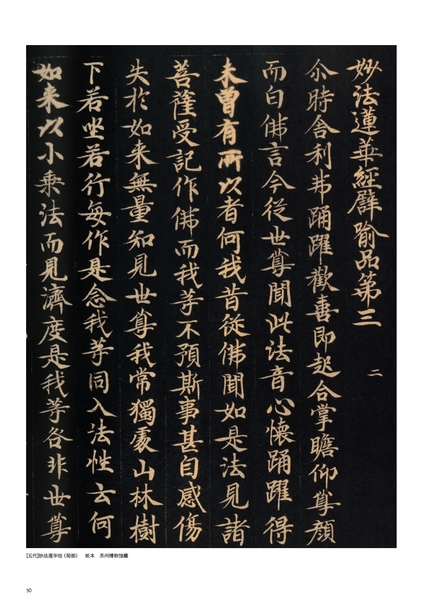 妙法蓮華經譬喻品第三 二
尒時舍利弗踊躍歡喜即起合掌瞻仰尊顏
而白佛言今從世尊聞此法音心懷踊躍得
未曾有所以者何我昔從佛聞如是法見諸
菩薩受記作佛而我等不預斯事甚自感傷
失於如來無量知見世尊我常獨處山林樹
下若坐若行每作是念我等同入法性云何
如來以小乘法而見濟度是我等咎非世尊
[五代]妙法蓮华经（局部） 纸本 苏州博物馆藏
50